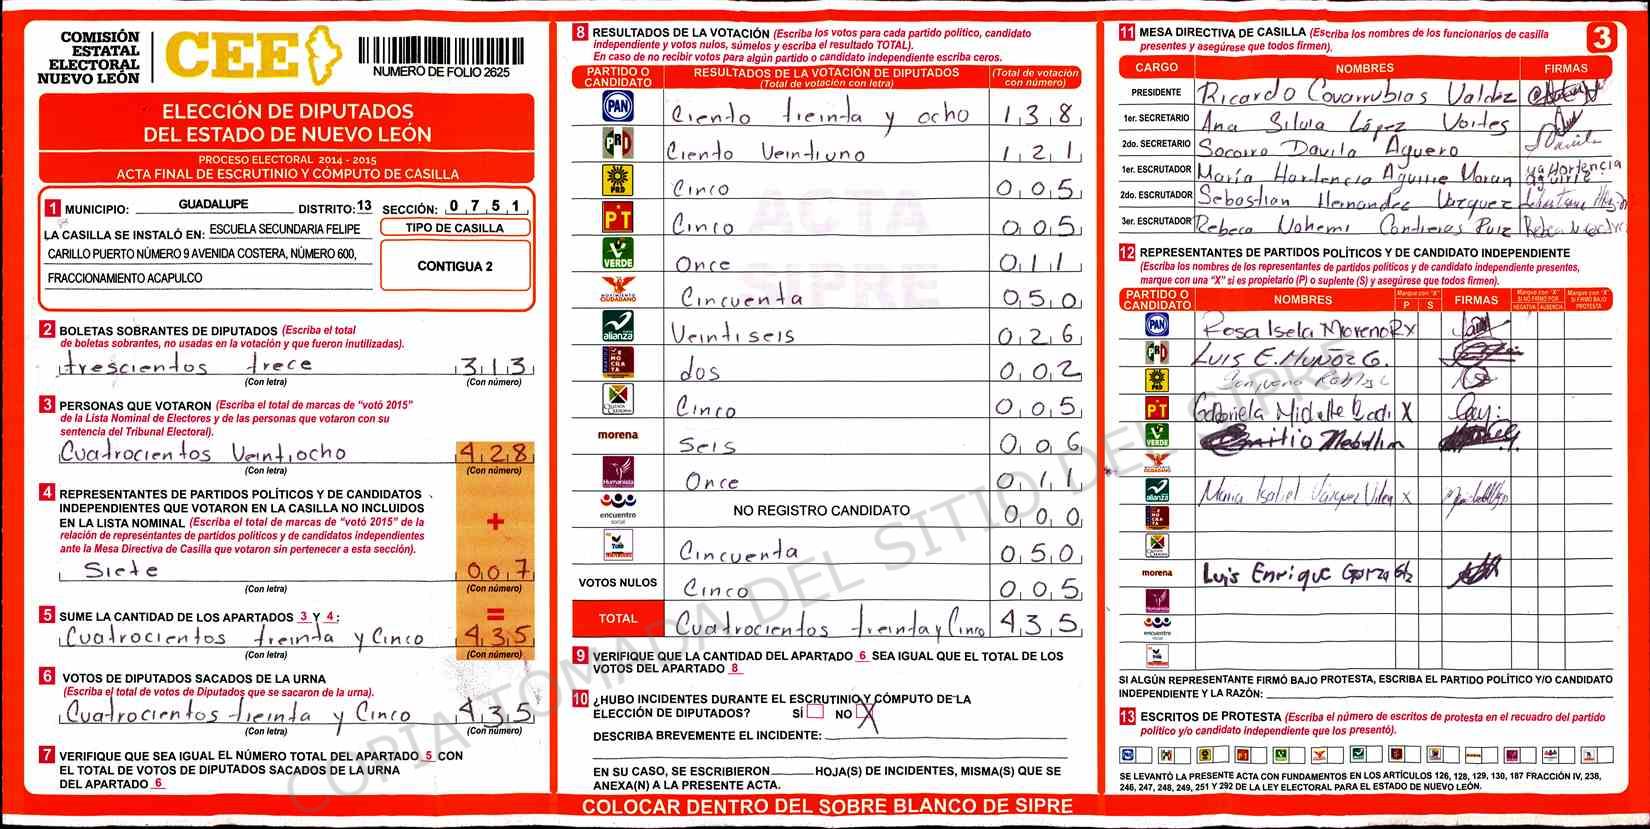 COMISIÓN
ESTATAL
ELECTORAL
NUEVO LEÓN
CEE
NUMERO DE FOLIO 2625
ELECCIÓN DE DIPUTADOS
DEL ESTADO DE NUEVO LEÓN
PROCESO ELECTORAL 2014 - 2015
ACTA FINAL DE ESCRUTINIO Y CÓMPUTO DE CASILLA
1 MUNICIPIO: GUADALUPE DISTRITO: 13 SECCIÓN: 0 7 5 1
LA CASILLA SE INSTALÓ EN: ESCUELA SECUNDARIA FELIPE
CARILLO PUERTO NÚMERO 9 AVENIDA COSTERA, NÚMERO 600,
FRACCIONAMIENTO ACAPULCO
TIPO DE CASILLA
CONTIGUA 2
2 BOLETAS SOBRANTES DE DIPUTADOS (Escriba el total
de boletas sobrantes, no usadas en la votación y que fueron inutilizadas).
trescientos trece 3 1 3
(Con letra) (Con número)
3 PERSONAS QUE VOTARON (Escriba el total de marcas de "votó 2015"
de la Lista Nominal de Electores y de las personas que votaron con su
sentencia del Tribunal Electoral).
Cuatrocientos Veintiocho 4 2 8
(Con letra) (Con número)
4 REPRESENTANTES DE PARTIDOS POLÍTICOS Y DE CANDIDATOS
INDEPENDIENTES QUE VOTARON EN LA CASILLA NO INCLUIDOS
EN LA LISTA NOMINAL (Escriba el total de marcas de "votó 2015" de la
relación de representantes de partidos políticos y de candidatos independientes
ante la Mesa Directiva de Casilla que votaron sin pertenecer a esta sección).
+
Siete 0 0 7
(Con letra) (Con número)
5 SUME LA CANTIDAD DE LOS APARTADOS 3 Y 4: =
Cuatrocientos treinta y Cinco 4 3 5
(Con letra) (Con número)
6 VOTOS DE DIPUTADOS SACADOS DE LA URNA
(Escriba el total de votos de Diputados que se sacaron de la urna).
Cuatrocientos treinta y Cinco 4 3 5
(Con letra) (Con número)
7 VERIFIQUE QUE SEA IGUAL EL NÚMERO TOTAL DEL APARTADO 5 CON
EL TOTAL DE VOTOS DE DIPUTADOS SACADOS DE LA URNA
DEL APARTADO 6
8 RESULTADOS DE LA VOTACIÓN (Escriba los votos para cada partido político, candidato
independiente y votos nulos, súmelos y escriba el resultado TOTAL).
En caso de no recibir votos para algún partido o candidato independiente escriba ceros.
PARTIDO O CANDIDATO RESULTADOS DE LA VOTACIÓN DE DIPUTADOS (Total de votación con letra) (Total de votación con número)
PAN Ciento treinta y ocho 1 3 8
PRI Ciento Veintiuno 1 2 1
PRD Cinco 0 0 5
PT Cinco 0 0 5
VERDE Once 0 1 1
MOVIMIENTO CIUDADANO Cincuenta 0 5 0
alianza Veintiseis 0 2 6
DEMOCRATA dos 0 0 2
CRUZADA CIUDADANA Cinco 0 0 5
morena Seis 0 0 6
Humanista Once 0 1 1
encuentro social NO REGISTRO CANDIDATO 0 0 0
Cincuenta 0 5 0
VOTOS NULOS Cinco 0 0 5
TOTAL Cuatrocientos treinta y Cinco 4 3 5
9 VERIFIQUE QUE LA CANTIDAD DEL APARTADO 6 SEA IGUAL QUE EL TOTAL DE LOS
VOTOS DEL APARTADO 8
10 ¿HUBO INCIDENTES DURANTE EL ESCRUTINIO Y CÓMPUTO DE LA
ELECCIÓN DE DIPUTADOS? SÍ NO X
DESCRIBA BREVEMENTE EL INCIDENTE:
EN SU CASO, SE ESCRIBIERON HOJA(S) DE INCIDENTES, MISMA(S) QUE SE
ANEXA(N) A LA PRESENTE ACTA.
COLOCAR DENTRO DEL SOBRE BLANCO DE SIPRE
ACTA
SIPRE
COPIA TOMADA DEL SITIO DEL SIPRE
11 MESA DIRECTIVA DE CASILLA (Escriba los nombres de los funcionarios de casilla
presentes y asegúrese que todos firmen).
3
CARGO NOMBRES FIRMAS
PRESIDENTE Ricardo Covarrubias Valdez
1er. SECRETARIO Ana Silvia López
2do. SECRETARIO Socorro Davila Aguero
1er. ESCRUTADOR María Hortencia Aguirre Moran
2do. ESCRUTADOR Sebastian Hernandez Vazquez
3er. ESCRUTADOR Rebeca Nohemi Contreras Ruiz
12 REPRESENTANTES DE PARTIDOS POLÍTICOS Y DE CANDIDATO INDEPENDIENTE
(Escriba los nombres de los representantes de partidos políticos y de candidato independiente presentes,
marque con una "X" si es propietario (P) o suplente (S) y asegúrese que todos firmen).
PARTIDO O CANDIDATO NOMBRES Marque con "X" P S FIRMAS Marque con "X" SI NO FIRMÓ POR NEGATIVA AUSENCIA Marque con "X" SI FIRMÓ BAJO PROTESTA
PAN Rosa Isela Moreno R x
PRI LUIS E. MUÑOZ G.
PRD
PT Gabriela X
VERDE Emilio Medellin
MOVIMIENTO CIUDADANO
alianza Maria Isabel Vázquez x
morena Luis Enrique Garza
Humanista
encuentro social
SI ALGÚN REPRESENTANTE FIRMÓ BAJO PROTESTA, ESCRIBA EL PARTIDO POLÍTICO Y/O CANDIDATO
INDEPENDIENTE Y LA RAZÓN:
13 ESCRITOS DE PROTESTA (Escriba el número de escritos de protesta en el recuadro del partido
político y/o candidato independiente que los presentó).
SE LEVANTÓ LA PRESENTE ACTA CON FUNDAMENTOS EN LOS ARTÍCULOS 126, 128, 129, 130, 187 FRACCIÓN IV, 238,
246, 247, 248, 249, 251 Y 292 DE LA LEY ELECTORAL PARA EL ESTADO DE NUEVO LEÓN.